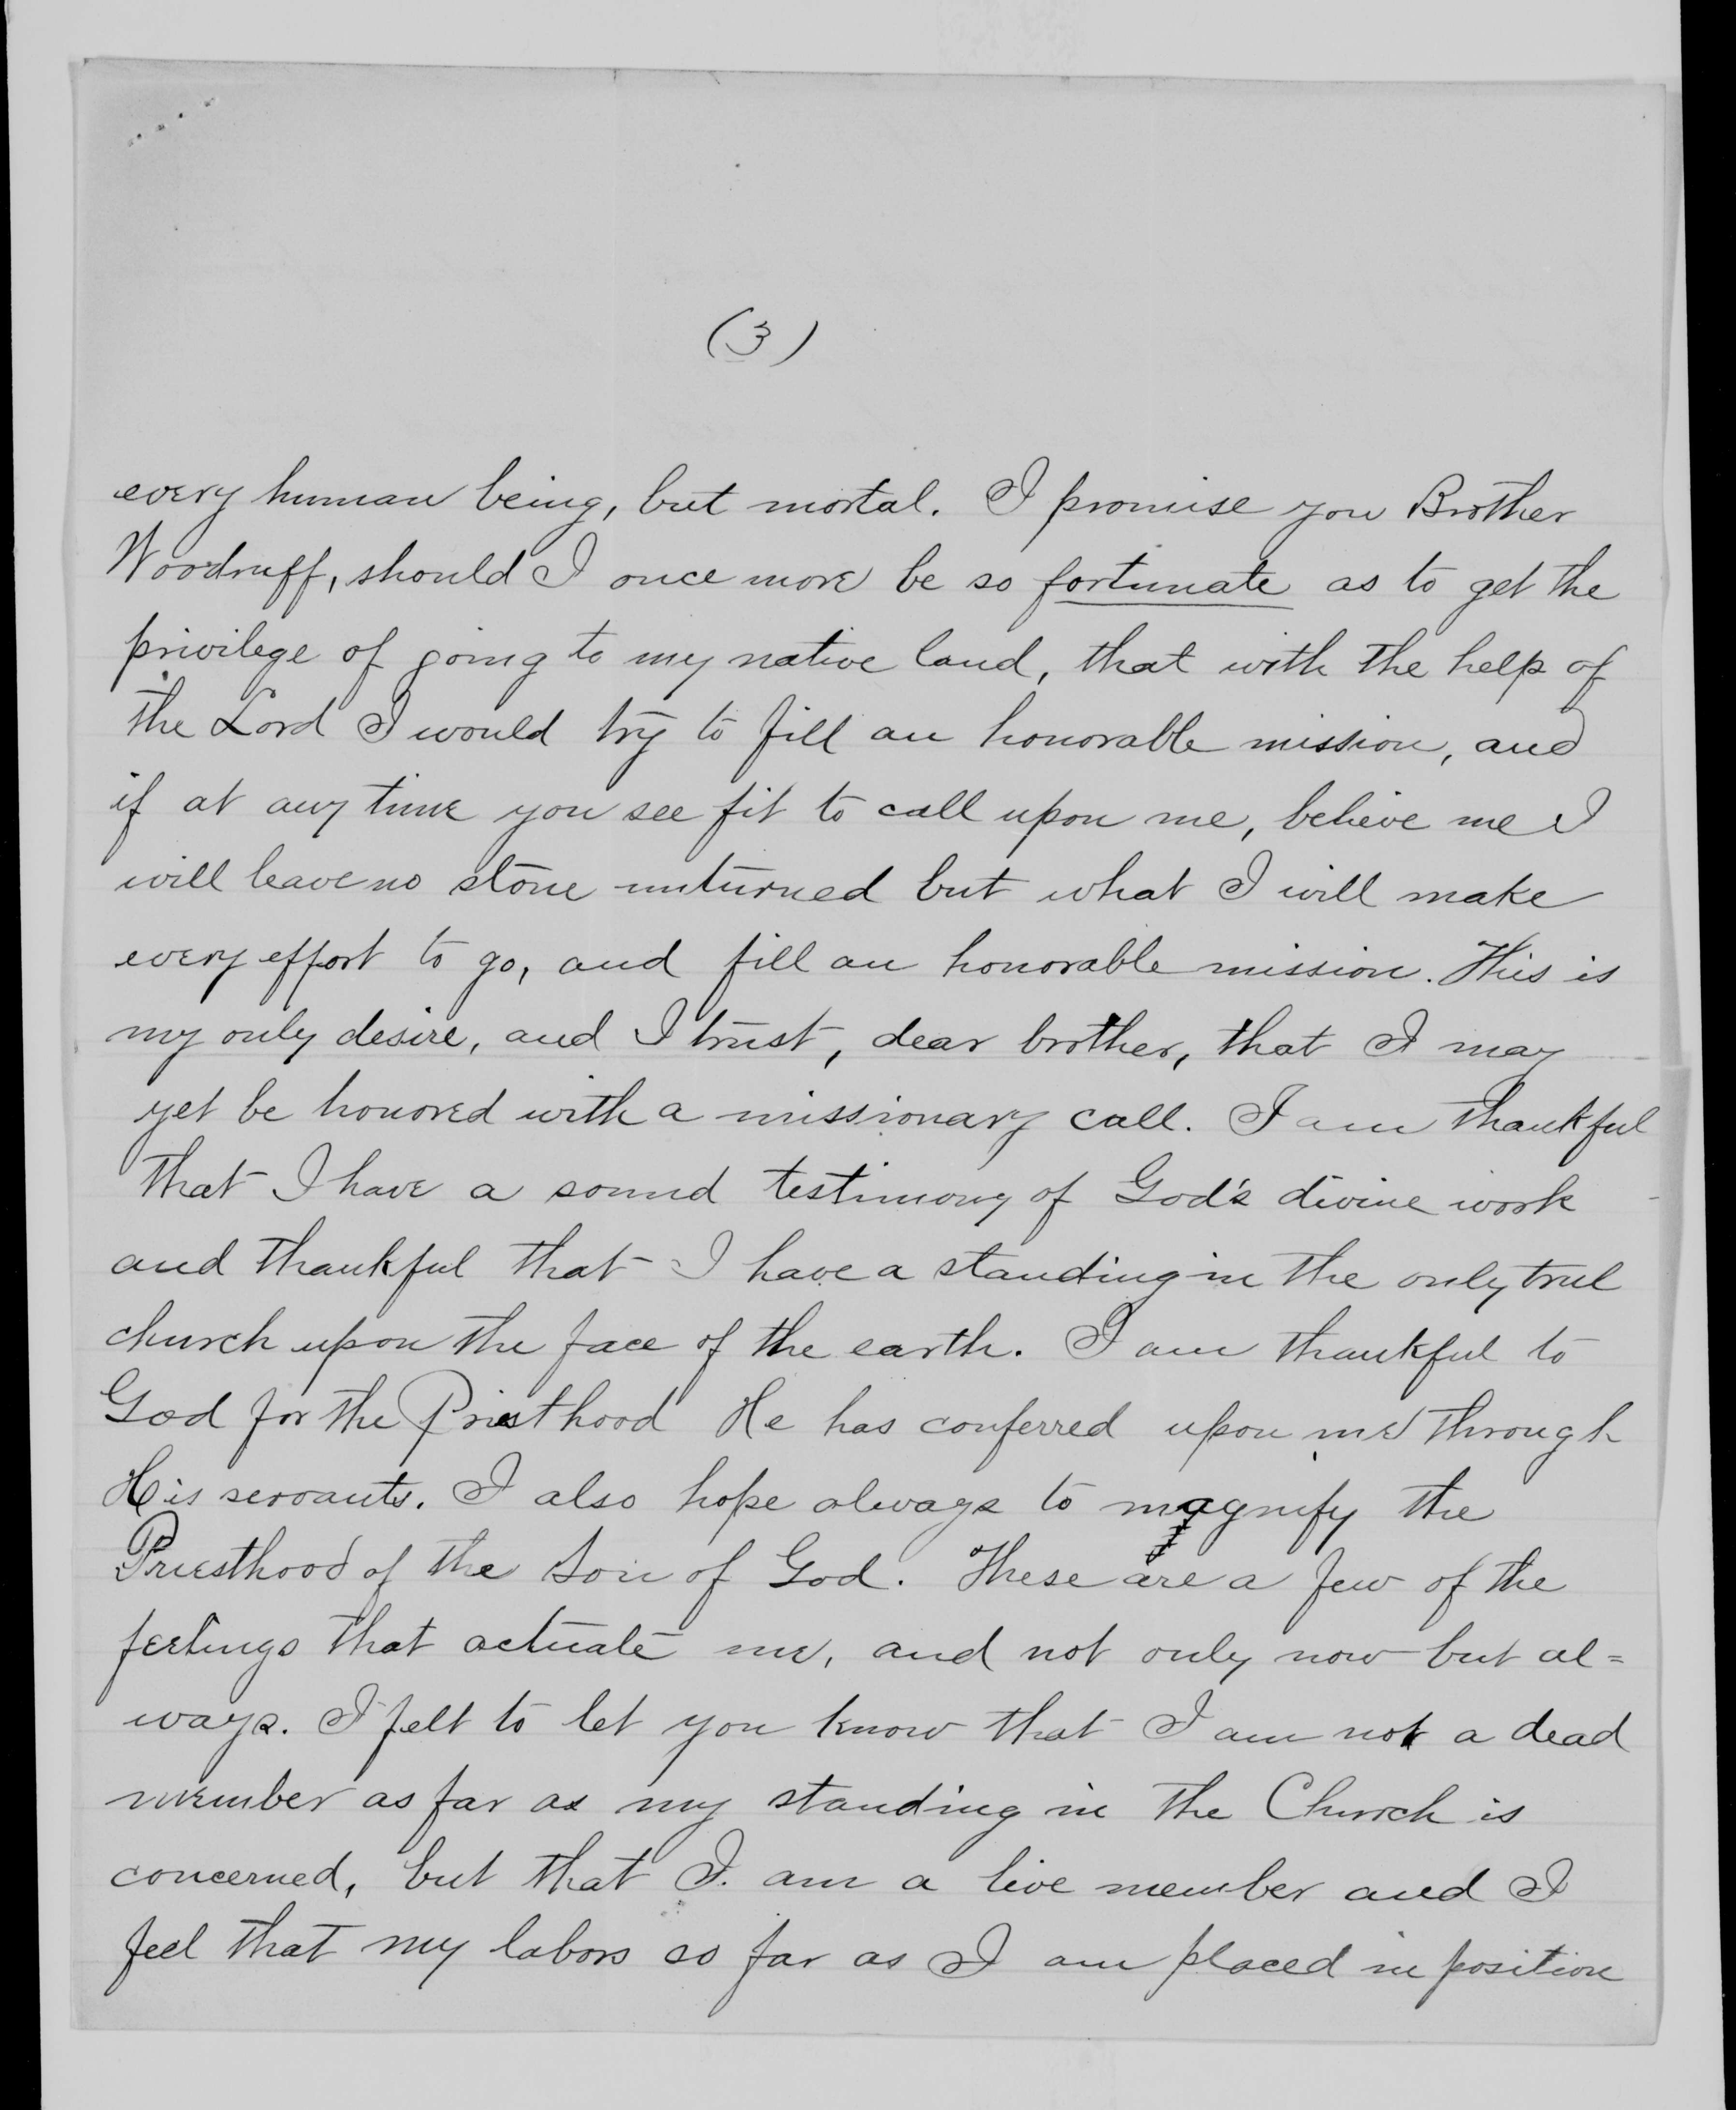 (3)
every human being, but mortal. I promise you Brother
Woodruff, should I once more be so fortunate as to get the
privilege of going to my native land, that with the help of
the Lord I would try to fill an honorable mission, and
if at any time you see fit to call upon me, believe me I
will leave no stone unturned but what I will make
every effort to go, and fill an honorable mission. This is
my only desire, and I trust, dear brother, that I may
yet be honored with a missionary call. I am thankful
that I have a sound testimony of God's divine work
and thankful that I have a standing in the only true
church upon the face of the earth. I am thankful to
God for the Priesthood He has conferred upon me through
His servants. I also hope always to magnify the
Priesthood of the Son of God. These are a few of the
feelings that actuate me, and not only now but al=
ways. I felt to let you know that I am not a dead
member as far as my standing in the Church is
concerned, but that I. am a live member and I
feel that my labors so far as I am placed in position